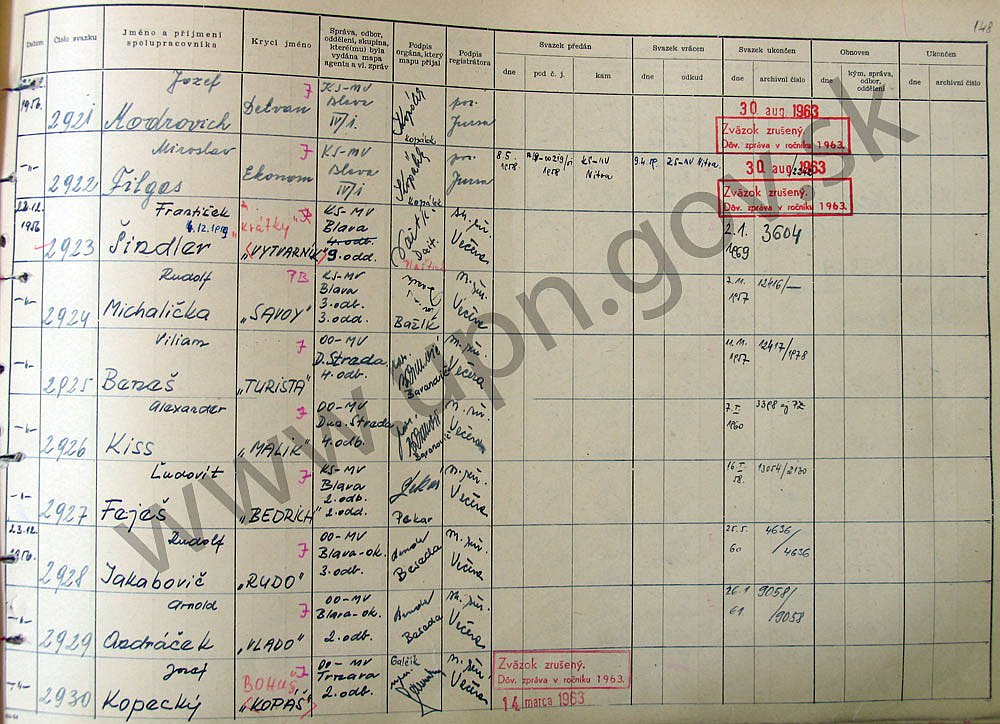 148
Datum
Číslo svazku
Jméno a příjmení spolupracovníka
Krycí jméno
Správa, odbor, oddělení, skupina, které(mu) byla vydána mapa agenta a vl. zpráv
Podpis orgána, který mapu přijal
Podpis registrátora
Svazek předán
dne
pod č. j.
kam
Svazek vrácen
dne
odkud
Svazek ukončen
dne
archivní číslo
Obnoven
dne
kým, správa, odbor, oddělení
Ukončen
dne
archivní číslo
1956.
2921
Jozef
Modrovich
7
Detvan
KS-MV
Blava
IV/1.
Kopálek
por.
Jursa
30 aug 1963
Zväzok zrušený.
Dôv. zpráva v ročníku 1963.
-"-
2922
Miroslav
Filgas
7
Ekonom
KS-MV
Blava
IV/1.
Kopálek
por.
Jursa
8.5.
1958
1958
KS-MV
Nitra
KS-MV Nitra
30 aug 1963
Zväzok zrušený.
Dôv. zpráva v ročníku 1963.
22.12.
1956
2923
František
Šindler
"Krátky"
"VYTVARNÍK"
KS-MV
Blava
4. odb.
9. odd.
Večera
2.1.
1969
3604
-"-
2924
Rudolf
Michalička
PB
"SAVOY"
KS-MV
Blava
3. odb.
3. odd.
Bažík
Večera
2.11.
1957
12416/—
-"-
2925
Viliam
Banaš
7
"TURISTA"
OO-MV
D. Strada
4. odb.
Baranovič
Večera
11.11.
1957
12417/1978
-"-
2926
Alexander
Kiss
7
"MALIK"
OO-MV
Dun. Strada
4. odb.
Baranovič
Večera
1960
-"-
2927
Ľudovít
Feješ
7
"BEDRICH"
KS-MV
Blava
2. odb.
2. odd.
Pekar
Večera
58.
13054/2130
23.12.
1956.
2928
Rudolf
Jakabovič
7
"RUDO"
OO-MV
Blava-ok.
3. odb.
Besada
Večera
25.5.
60
4636
/4636
-"-
2929
Arnold
Ondráček
7
"VLADO"
OO-MV
Blava-ok.
2. odb.
Besada
Večera
26.1
61
9058/
/9058
-"-
2930
Jozef
Kopecký
BOHUŠ
"KOPÁŠ"
OO-MV
Trnava
2. odb.
Galčík
Večera
Zväzok zrušený.
Dôv. zpráva v ročníku 1963.
14 marca 1963
www.upn.gov.sk